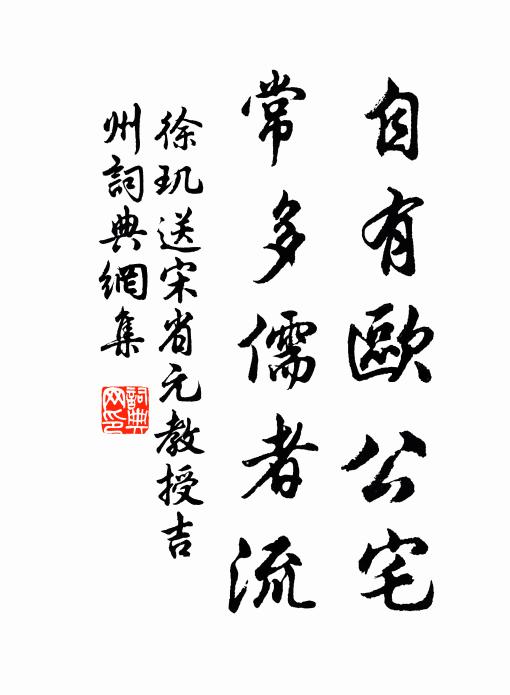 自有歐公宅
常多儒者流
徐玑送宋省元教授吉
州詞典網集
詞典
网印